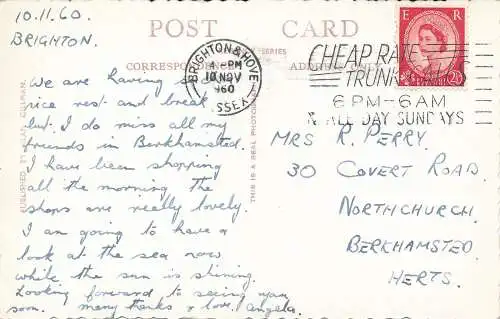 10.11.60.
BRIGHTON.
POST CARD
CORRESPONDENCE
ADDRESS ONLY
SERIES
BRIGHTON & HOVE
4-PM
10 NOV
1960
SSEX
CHEAP RATE
TRUNK
6PM-6AM
& ALL DAY SUNDAYS
E R
2½D
We are having a
nice rest and break
but I do miss all my
friends in Berkhamsted.
I have been shopping
all the morning the
shops are really lovely.
I am going to have a
look at the sea now
while the sun is shining.
Looking forward to seeing you
soon. many thanks & love. Angela.
PUBLISHED BY
THIS IS A REAL PHOTOGRAPH
MRS R. PERRY.
30 COVERT ROAD.
NORTHCHURCH.
BERKHAMSTED.
HERTS.